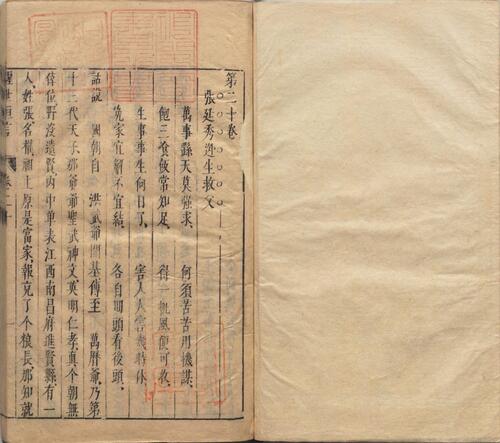 第二十卷
張廷秀逃生救父
萬事繇天莫強求　何須苦苦用機謀
飽三食飯常知足　得一帆風便可收
生事事生何日了　害人人害幾時休
冤家宜解不宜結　各自回頭看後頭
話說　國朝自　洪武爺開基傳至　萬曆爺乃第
十三代天子那爺爺聖武神文英明仁孝真个朝無
倖位野沒遺賢內中單表江西南昌府進賢縣有一
人姓張名權祖上原是富家報充了个糧長那知就
醒世恒言　卷二十